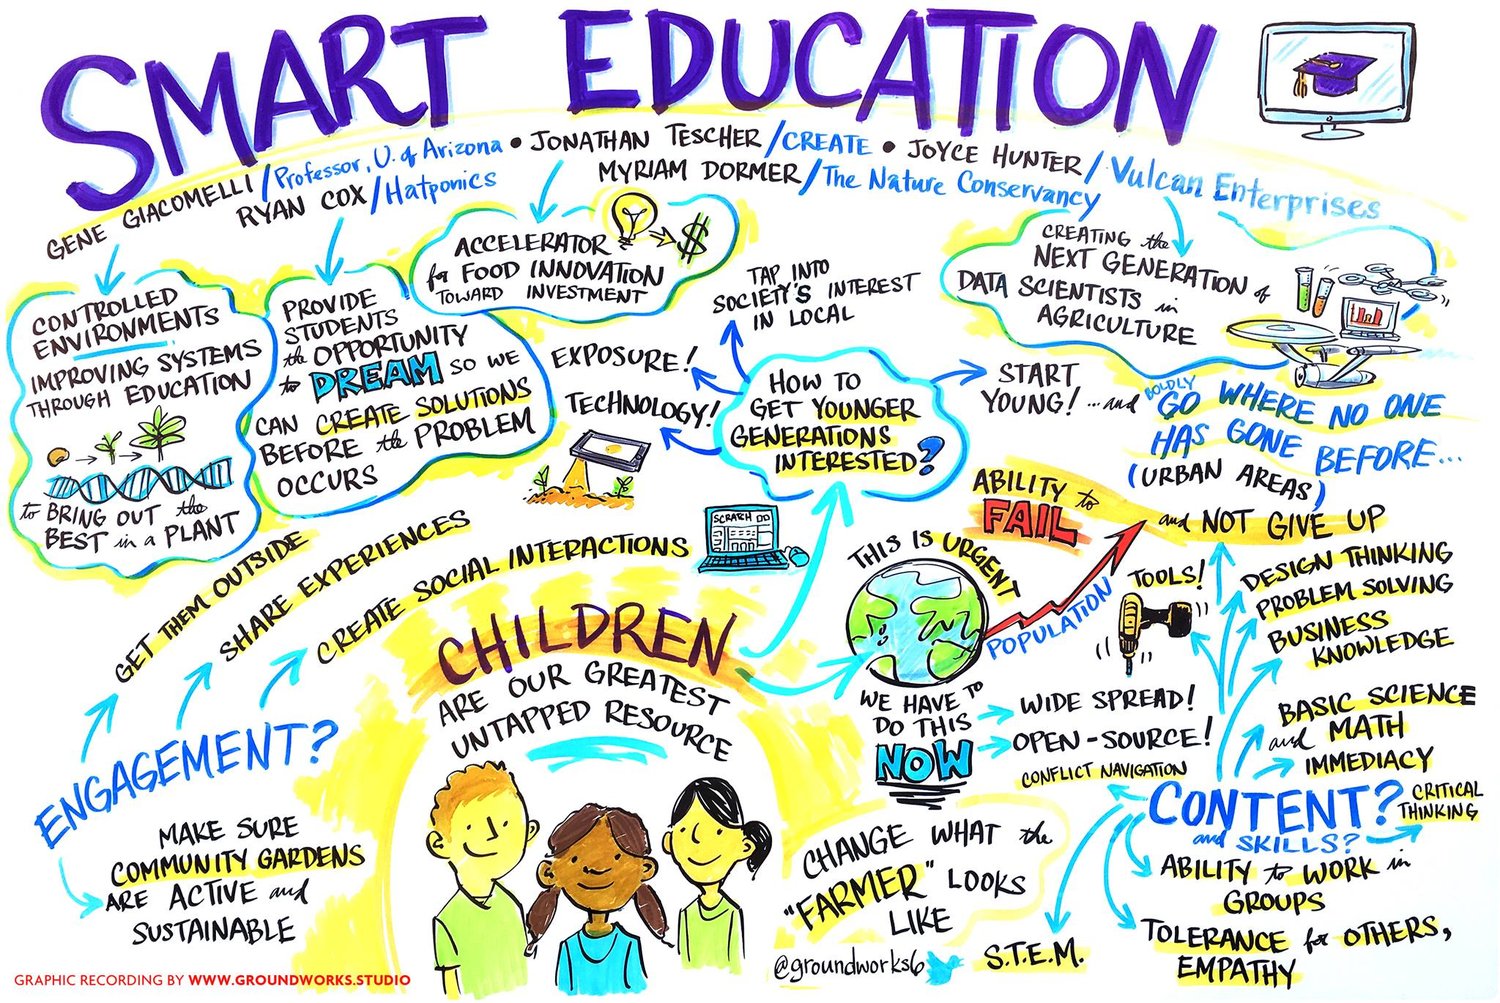 SMART EDUCATION
GENE GIACOMELLI / Professor, U. of Arizona • JONATHAN TESCHER / CREATE • JOYCE HUNTER / Vulcan Enterprises
RYAN COX / Hatponics
MYRIAM DORMER / The Nature Conservancy
CONTROLLED
ENVIRONMENTS
IMPROVING SYSTEMS
THROUGH EDUCATION
to BRING OUT the
BEST in a PLANT
PROVIDE
STUDENTS
the OPPORTUNITY
to DREAM SO WE
CAN CREATE SOLUTIONS
BEFORE the PROBLEM
OCCURS
ACCELERATOR
for FOOD INNOVATION
TOWARD INVESTMENT
$
CREATING the
NEXT GENERATION of
DATA SCIENTISTS in
AGRICULTURE
TAP INTO
SOCIETY'S INTEREST
IN LOCAL
EXPOSURE!
TECHNOLOGY!
HOW TO
GET YOUNGER
GENERATIONS
INTERESTED?
START
YOUNG! ...and
BOLDLY
GO WHERE NO ONE
HAS GONE BEFORE...
(URBAN AREAS)
ABILITY to
FAIL
and NOT GIVE UP
SCRATCH
GET THEM OUTSIDE
SHARE EXPERIENCES
CREATE SOCIAL INTERACTIONS
ENGAGEMENT?
MAKE SURE
COMMUNITY GARDENS
ARE ACTIVE and
SUSTAINABLE
CHILDREN
ARE OUR GREATEST
UNTAPPED RESOURCE
THIS IS URGENT
POPULATION
WE HAVE TO
DO THIS
NOW
WIDE SPREAD!
OPEN-SOURCE!
CONFLICT NAVIGATION
TOOLS!
DESIGN THINKING
PROBLEM SOLVING
BUSINESS
KNOWLEDGE
BASIC SCIENCE
and MATH
IMMEDIACY
CONTENT?
and SKILLS?
CRITICAL
THINKING
ABILITY to WORK in
GROUPS
TOLERANCE for OTHERS,
EMPATHY
S.T.E.M.
CHANGE WHAT the
"FARMER" LOOKS
LIKE
@groundworks6
GRAPHIC RECORDING BY WWW.GROUNDWORKS.STUDIO